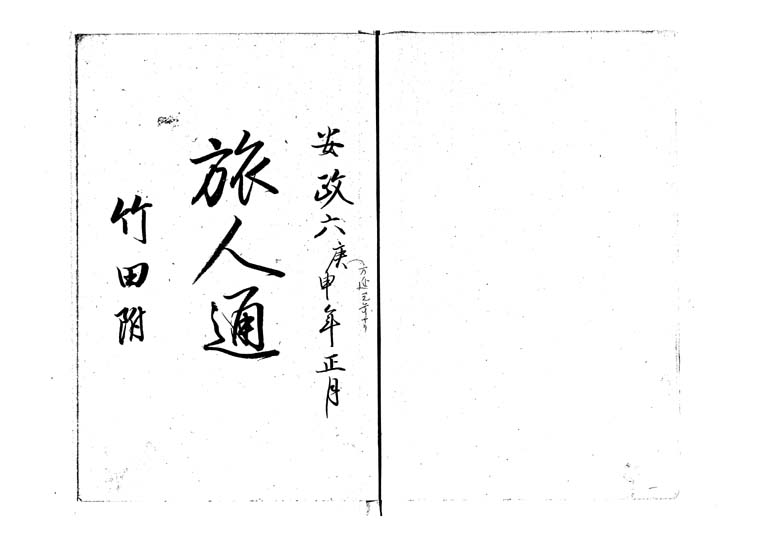 安政六庚申年正月
万延元年ナリ
旅人通
竹田附